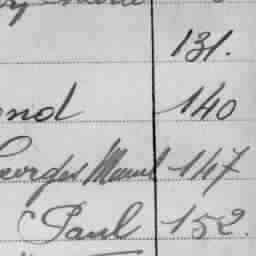 131.
ond 140
Georges Marcel 147
Paul 152.